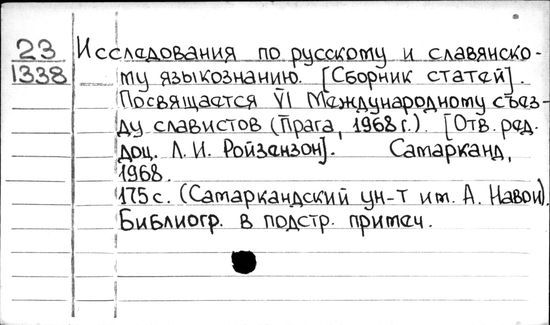 23
1338
Исследования по русскому и славянско-
му языкознанию. [Сборник статей].
Посвящается VI Международному съез-
ду славистов (Прага, 1968 г.). [Отв. ред.
доц. Л. И. Ройзензон]. Самарканд,
1968.
175 с. (Самаркандский ун-т им. А. Навои).
Библиогр. в подстр. примеч.